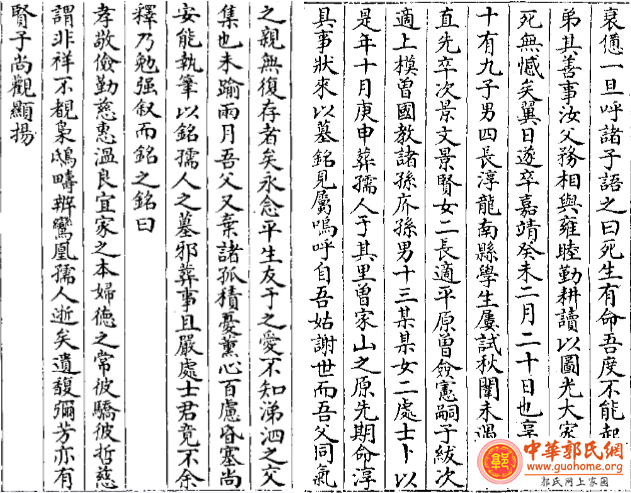 衰憊一旦呼諸子語之曰死生有命吾度不能起
弟其善事汝父務相與雍睦勤耕讀以圖光大家
死無憾矣翼日遂卒嘉靖癸未二月二十日也享
十有九子男四長淳龍南縣學生屢試秋闈未遇
直先卒次景文景賢女二長適平原曾僉憲嗣子紱次
適上模曾國教諸孫庎孫男十三某某女二處士卜以
是年十月庚申葬孺人于其里曾家山之原先期命淳
具事狀來以墓銘見屬嗚呼自吾姑謝世而吾父同氣
之親無復存者矣永念平生友于之愛不知涕泗之交
集也未踰兩月吾父又棄諸孤積憂薰心百慮昏塞尚
安能執筆以銘孺人之墓邪葬事且嚴處士君竟不余
釋乃勉强叙而銘之銘曰
孝敬儉勤慈惠溫良宜家之本婦德之常彼驕彼哲慈
謂非祥不覩梟鴟疇辨鸞凰孺人逝矣遺馥彌芳亦有
賢子尚觀顯揚
中華郭氏網
www.guohome.org
郭氏网上家园